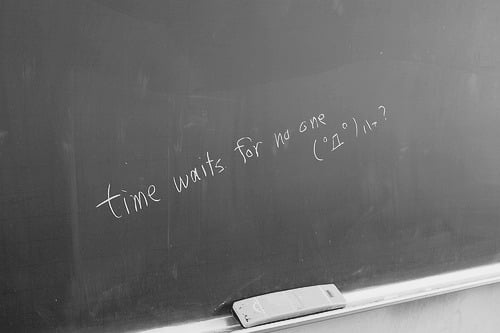 time waits for no one
(°Д°)ハァ?